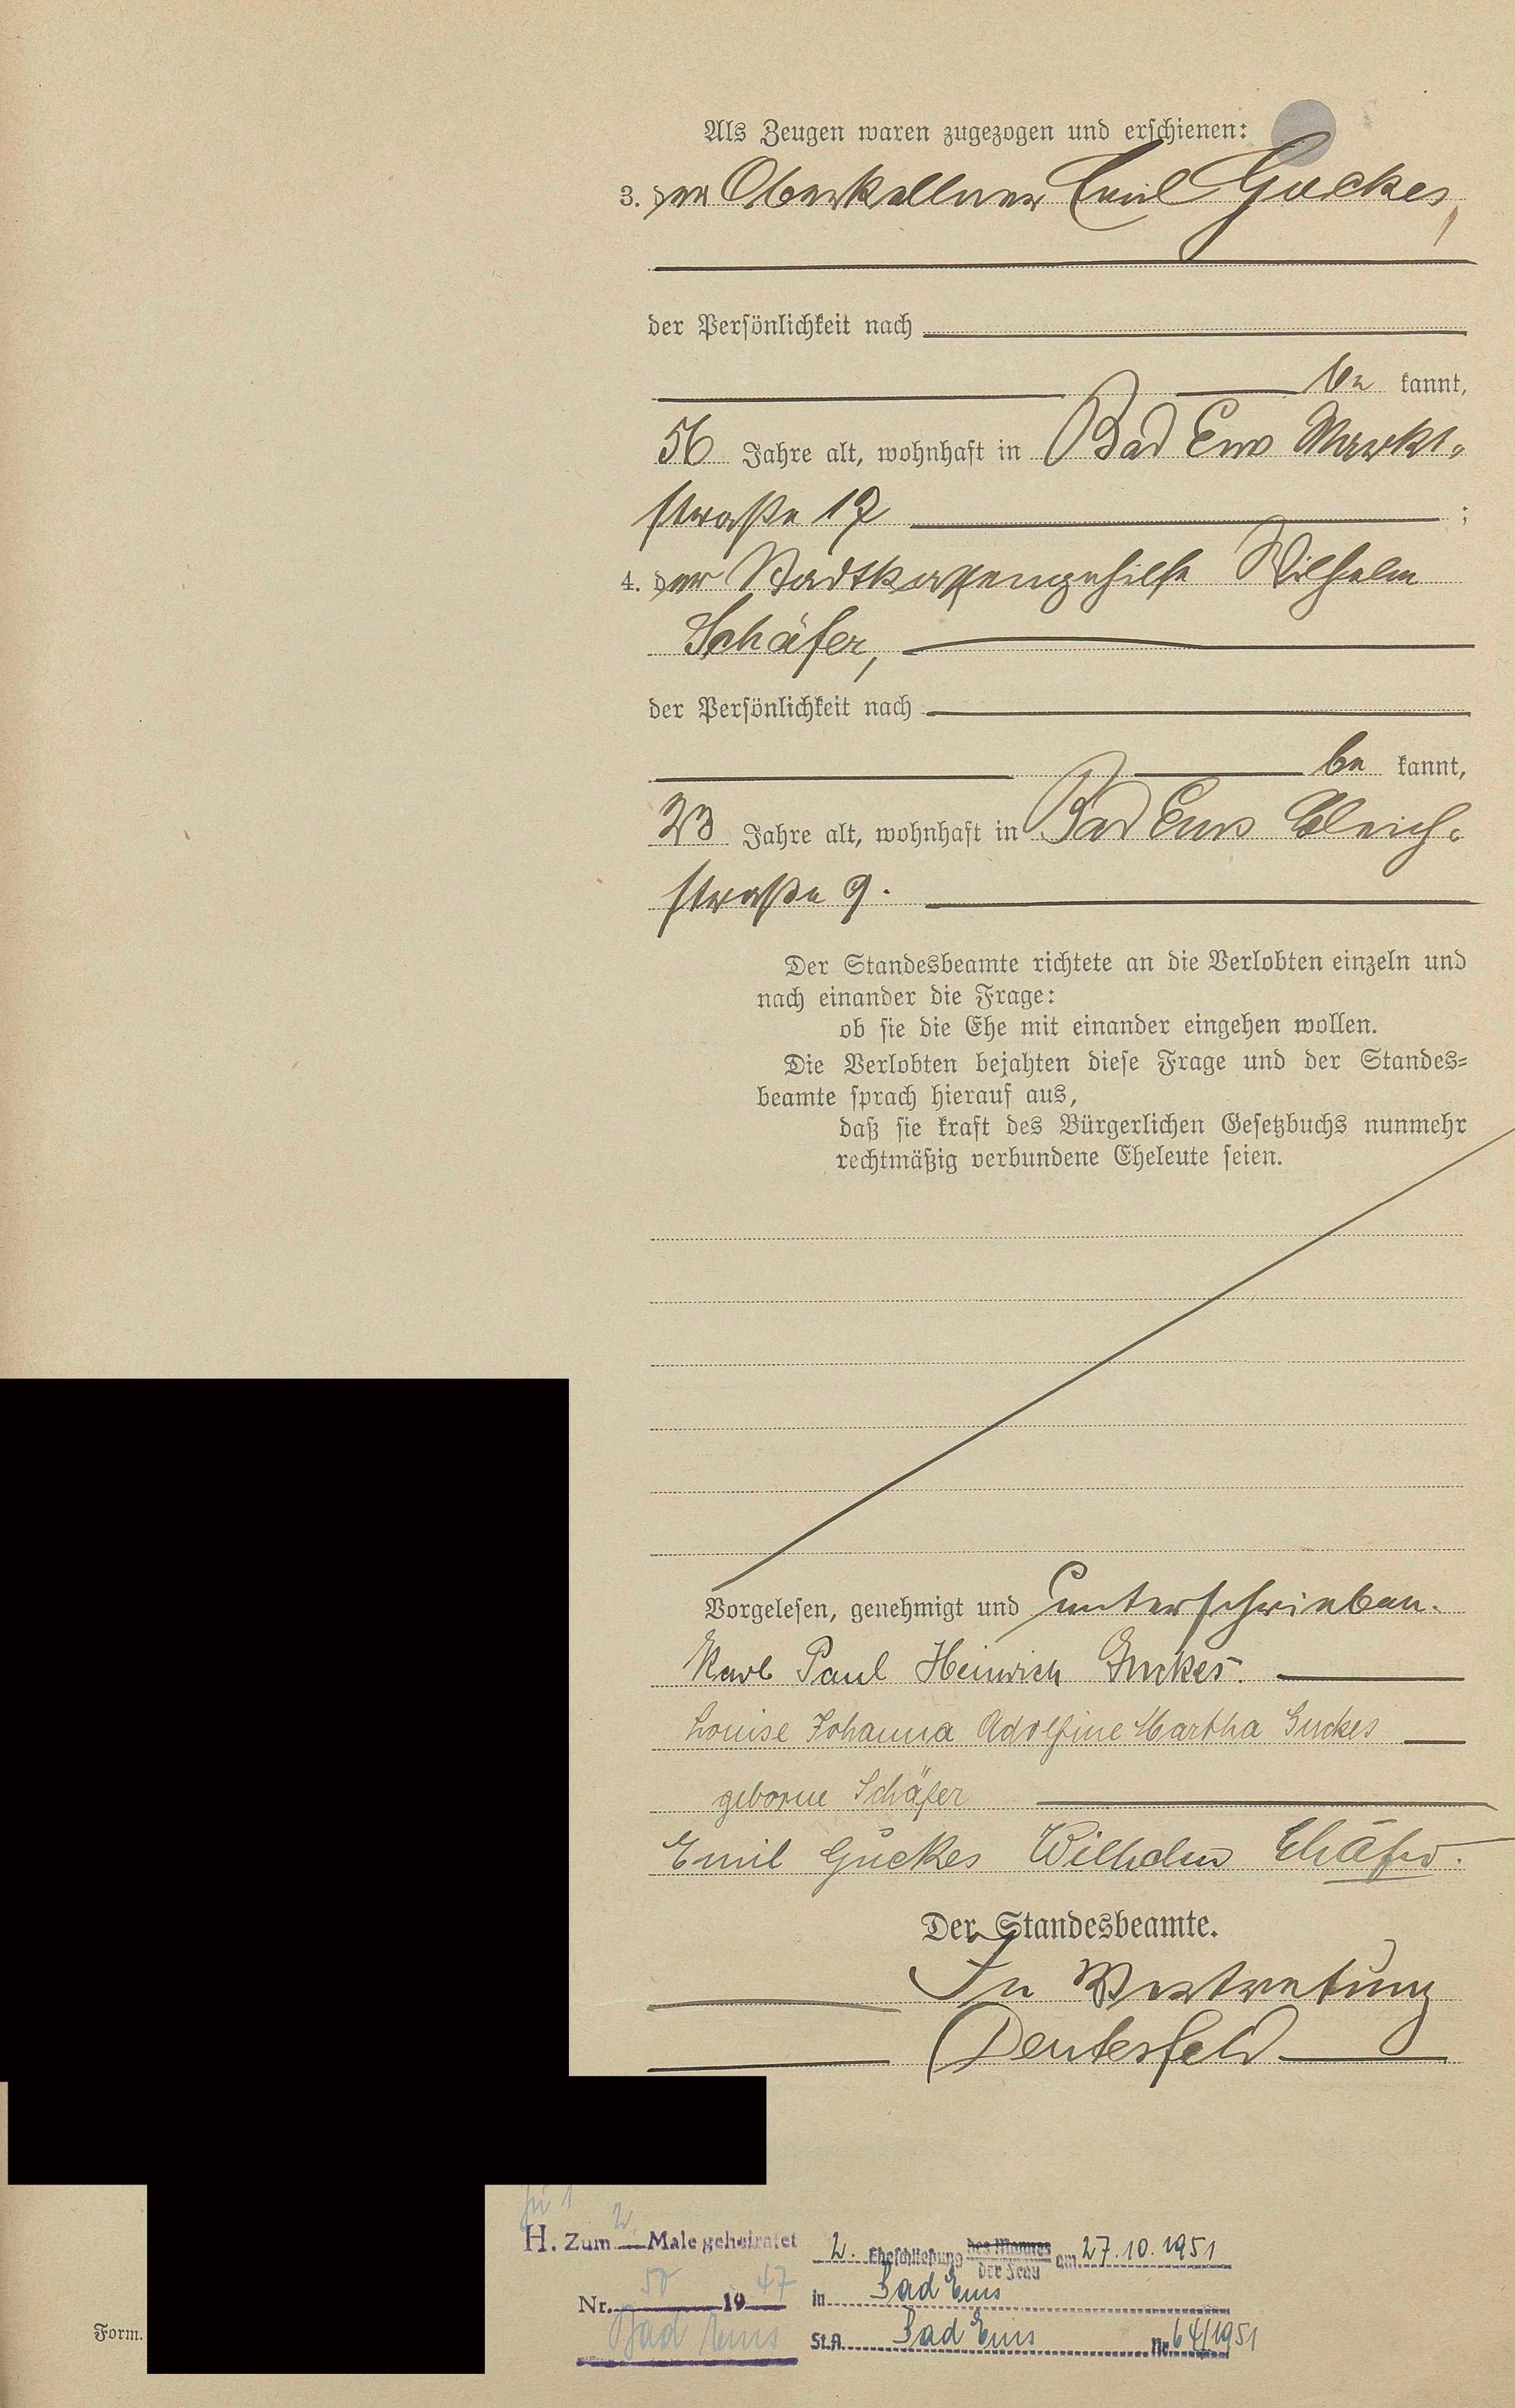 Als Zeugen waren zugezogen und erschienen:
3. der Oberkellner Emil Guckes,
der Persönlichkeit nach
be kannt,
56 Jahre alt, wohnhaft in Bad Ems Markt-
straße 17 ;
4. der Stadtkassengehilfe Wilhelm
Schäfer,
der Persönlichkeit nach
be kannt,
23 Jahre alt, wohnhaft in Bad Ems Bleich-
straße 9.
Der Standesbeamte richtete an die Verlobten einzeln und
nach einander die Frage:
ob sie die Ehe mit einander eingehen wollen.
Die Verlobten bejahten diese Frage und der Standes-
beamte sprach hierauf aus,
daß sie kraft des Bürgerlichen Gesetzbuchs nunmehr
rechtmäßig verbundene Eheleute seien.
Vorgelesen, genehmigt und unterschrieben.
Karl Paul Heinrich Guckes.
Louise Johanna Adolfine Martha Guckes
geborne Schäfer
Emil Guckes Wilhelm Schäfer.
Der Standesbeamte.
In Vertretung
Deutesfeld
zu 1
H. Zum 2. Male geheiratet
Nr. 50 1947
Bad Ems
2. Eheschließung des Mannes der Frau am 27.10.1951
in Bad Ems
St.A. Bad Ems Nr. 64/1951
Form.